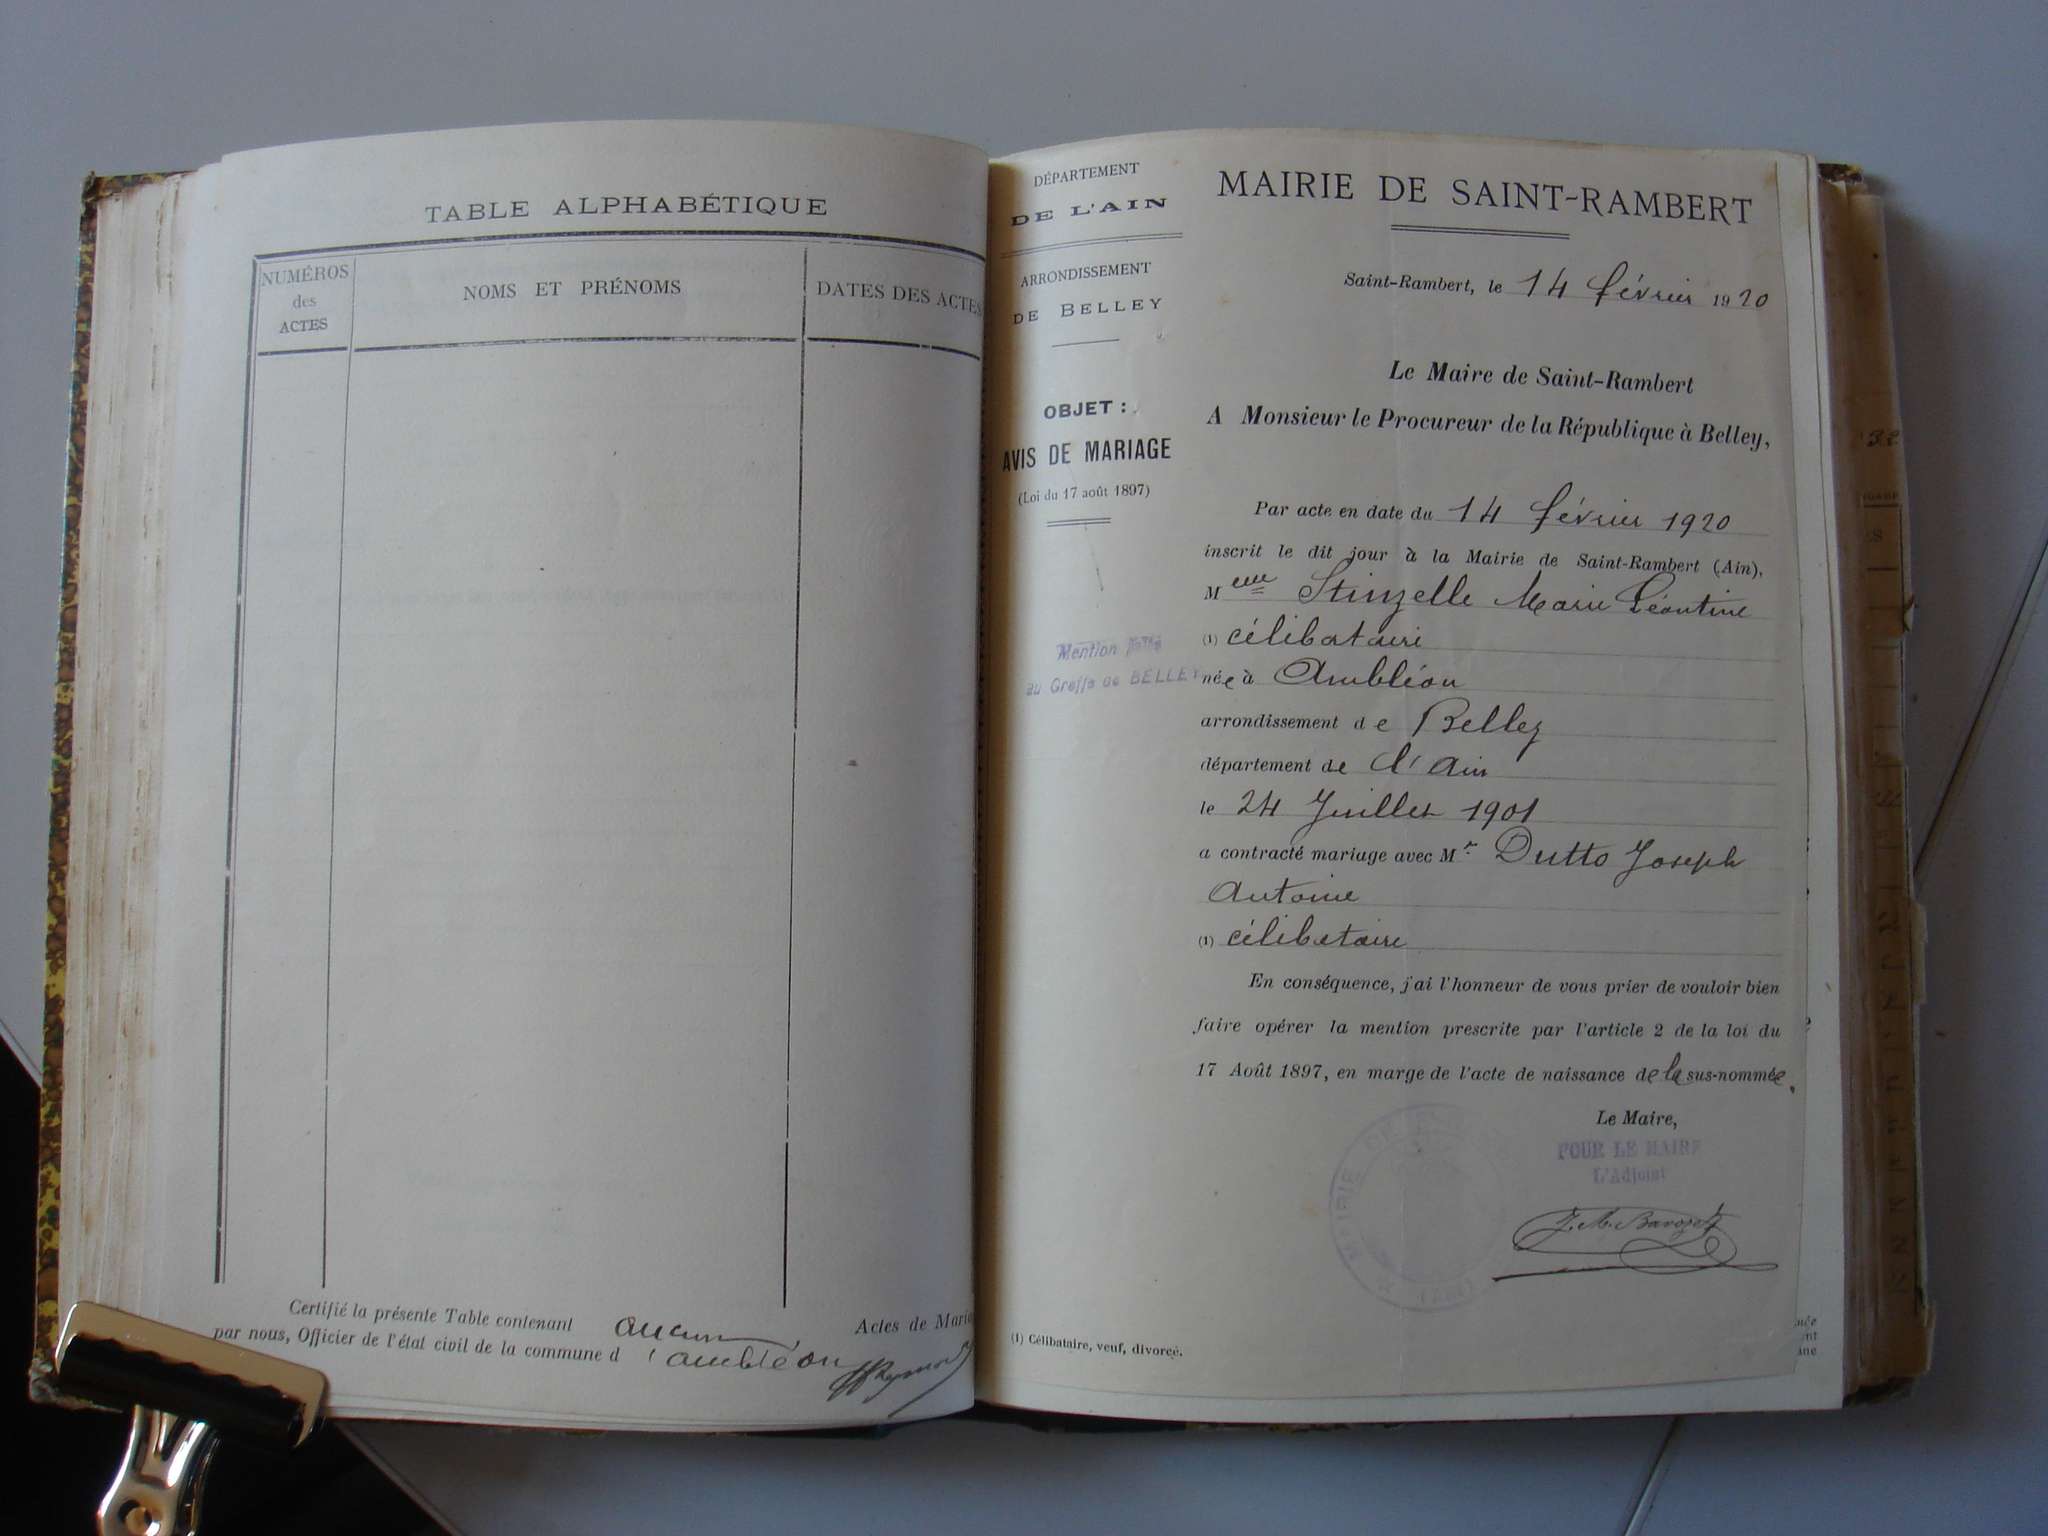 TABLE ALPHABÉTIQUE
NUMÉROS
des
ACTES
NOMS ET PRÉNOMS
DATES DES ACTES
Certifié la présente Table contenant aucun Actes de Maria
par nous, Officier de l'état civil de la commune d'ambléon
DÉPARTEMENT
DE L'AIN
ARRONDISSEMENT
DE BELLEY
OBJET :
AVIS DE MARIAGE
(Loi du 17 août 1897)
Mention faite
au Greffe de BELLEY
MAIRIE DE SAINT-RAMBERT
Saint-Rambert, le 14 février 1920
Le Maire de Saint-Rambert
A Monsieur le Procureur de la République à Belley,
Par acte en date du 14 février 1920
inscrit le dit jour à la Mairie de Saint-Rambert (Ain),
Melle Stinzelle Marie Léontine
(1) célibataire
née à Ambléon
arrondissement de Belley
département de l'Ain
le 24 Juillet 1901
a contracté mariage avec Mr Dutto Joseph
Antoine
(1) célibataire
En conséquence, j'ai l'honneur de vous prier de vouloir bien
faire opérer la mention prescrite par l'article 2 de la loi du
17 Août 1897, en marge de l'acte de naissance de la sus-nommée.
Le Maire,
POUR LE MAIRE
L'Adjoint
MAIRIE DE
(AIN)
(1) Célibataire, veuf, divorcé.